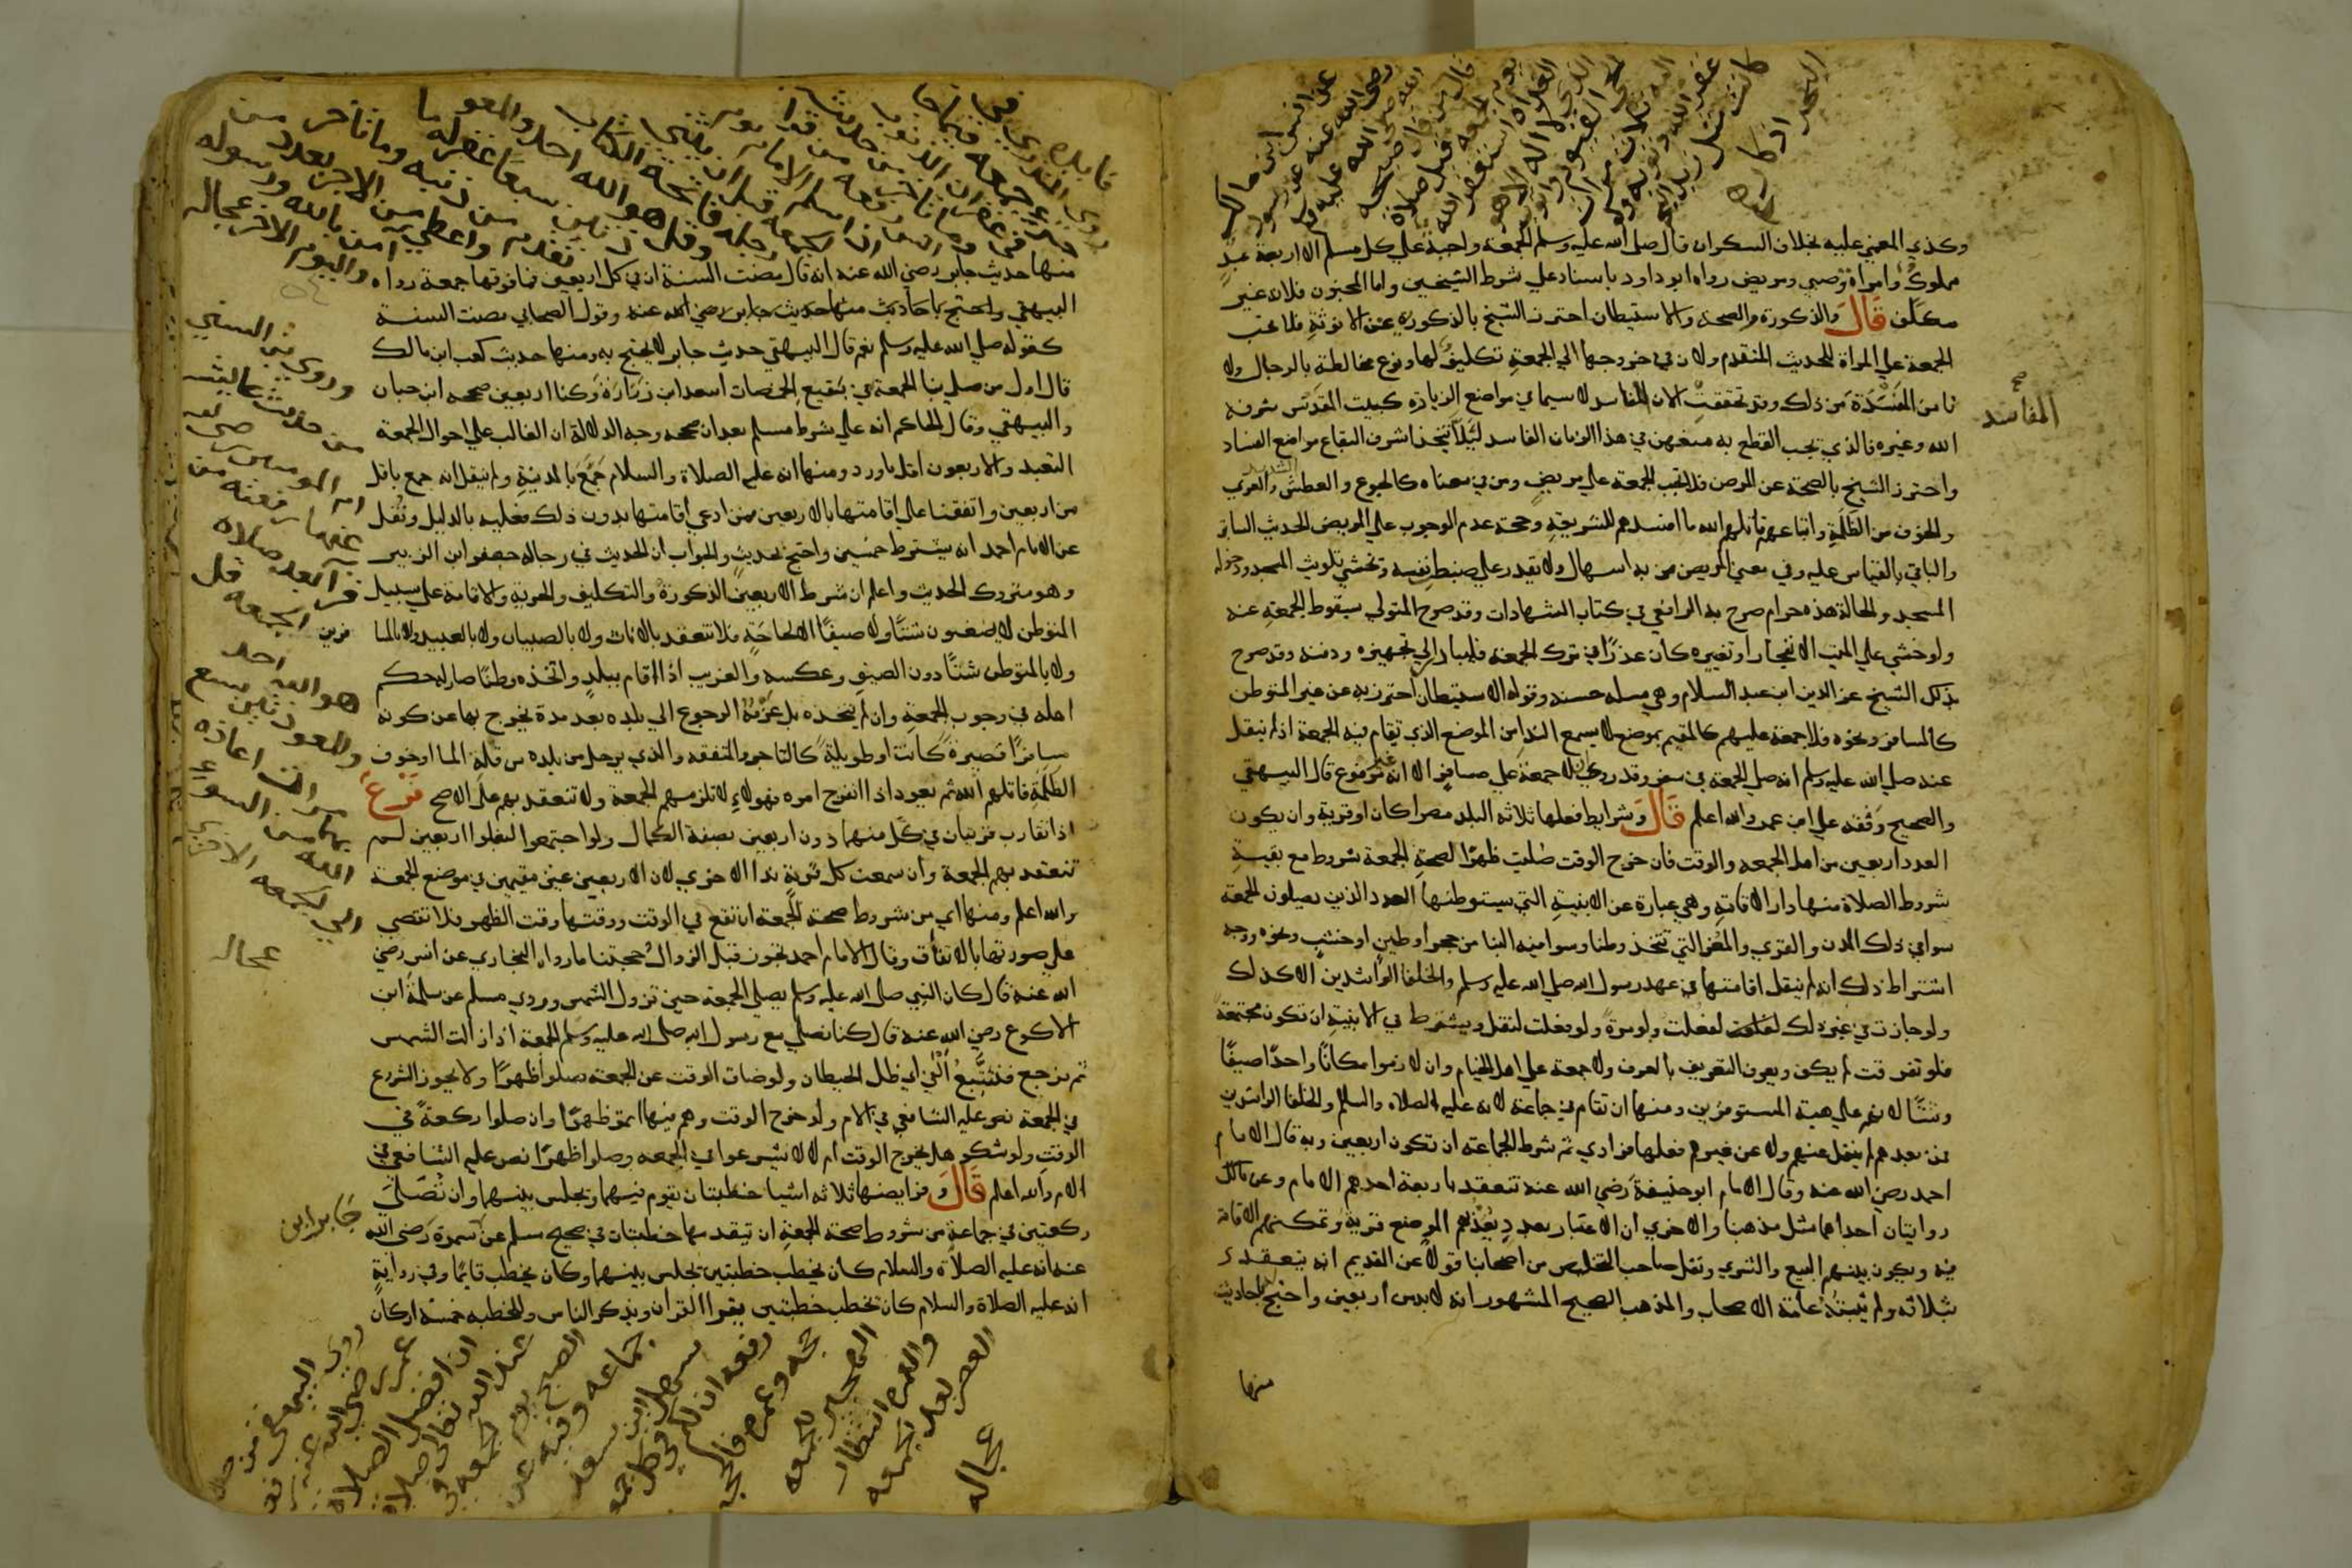 وكذي المغمي عليه بخلاف السكران قال صلى الله عليه وسلم الجمعة واجبة علي كل مسلم الا اربعة عبد
مملوك وامراة وصبي ومريض رواه ابو داود باسناد علي شرط الشيخين واما المجنون فلانه غير
مكلف قال والذكورة والصحة والاستيطان احترز الشيخ بالذكورة عن الانوثة فلا تجب
الجمعة علي المراة للحديث المتقدم ولان في خروجها الي الجمعة تكليف لها ونوع مخالطة بالرجال ولا
تامن المفسدة من ذلك وقد تحققت الان المفاسد لا سيما في مواضع الزيارة كبيت المقدس شرفه
الله وغيره فالذي يجب القطع به منعهن في هذا الزمان الفاسد ليلا تتخذ اشرف البقاع مواضع الفساد
واحترز الشيخ بالصحة عن المرض فلا تجب الجمعة علي مريض ومن في معناه كالجوع والعطش والعري
والخوف من الظلمة واتباعهم قاتلهم الله ما افسدهم للشريعة وحجة عدم الوجوب علي المريض الحديث السابق
والباقي بالقياس عليه وفي معني المريض من به اسهال ولا يقدر علي ضبط نفسه ويخشي تلويث المسجد ودخوله
المسجد والحالة هذه حرام صرح به الرافعي في كتاب الشهادات وقد صرح المتولي بسقوط الجمعة عنه
ولو خشي علي الميت الانفجار او تغيره كان عذرا في ترك الجمعة فليبادر الي تجهيزه ودفنه وقد صرح
بذلك الشيخ عز الدين ابن عبد السلام وهي مسله حسنة وقوله الاستيطان احترز به عن غير المتوطن
كالمسافر ونحوه فلا جمعة عليهم كالمقيم بموضع لا يسمع الندا من الموضع الذي تقام فيه الجمعة اذ لم ينقل
عنه صلي الله عليه وسلم انه صلي الجمعة في سفر وقد روي لا جمعة علي مسافر الا انه غير مرفوع قال البيهقي
والصحيح وقفه علي ابن عمر والله اعلم قال وشرايط فعلها ثلاثه البلد مصرا كان او قرية وان يكون
العدد اربعين من اهل الجمعه والوقت فان خرج الوقت صليت ظهرا لصحة الجمعة شروط مع بقية
شروط الصلاة منها دار الاقامة وهي عبارة عن الابنية التي يستوطنها العدد الذين يصلون الجمعة
سوا في ذلك المدن والقري والمغر التي تتخذ وطنا وسوا فيه البنا من حجر او طين او خشب ونحوه ووجه
اشتراط ذلك انه لم ينقل اقامتها في عهد رسول الله صلي الله عليه وسلم والخلفا الراشدين الا كذلك
ولو جازت في غير ذلك لفعلت ولو مرة ولو فعلت لنقل ويشترط في الابنية ان تكون مجتمعة
فلو تفرقت لم يكف ويعرف التفريق بالعرف ولا جمعة علي اهل الخيام وان لازموا مكانا واحدا صيفا
وشتا لانهم علي هيئة المستوفزين ومنها ان تقام في جماعة لانه عليه الصلاه والسلام والخلفا الراشدين
فمن بعدهم لم ينقل عنهم ولا عن غيرهم فعلها فرادي ثم شرط الجماعة ان تكون اربعين وبه قال الامام
احمد رضي الله عنه وقال الامام ابو حنيفة رضي الله عنه تنعقد باربعة احدهم الامام وعن مالك
روايتان احداهما مثل مذهبنا والاخري ان الاعتبار بعدد يعد بهم الموضع قرية وتمكنهم الاقامة
فيه ويكون بينهم البيع والشري ونقل صاحب التلخيص من اصحابنا قولا عن القديم انه ينعقد
بثلاثه ولم يثبته عامة الاصحاب والمذهب الصحيح المشهور انه لا بد من اربعين واحتج له باحاديث
منها
المفاسد
صح
عن انس ابن مالك
رضي الله عنه عن رسول
الله صلى الله عليه وسلم
قال من قال صبيحة
يوم الجمعة قبل صلاة
الغداة استغفر الله
الذي لا اله الا هو
الحي القيوم واتوب
اليه ثلاث مرات
غفر الله ذنوبه ولو
كانت مثل زبد
البحر
اذكار
منها حديث جابر رضي الله عنه انه قال مضت السنة ان في كل اربعين فما فوقها جمعة رواه
البيهقي واحتج باحاديث منها حديث جابر رضي الله عنه وقول الصحابي مضت السنة
كقوله صلي الله عليه وسلم نعم قال البيهقي حديث جابر لا يحتج به ومنها حديث كعب ابن مالك
قال اول من صلي بنا الجمعة في بقيع الخضمات اسعد ابن زرارة وكنا اربعين صححه ابن حبان
والبيهقي وقال الحاكم انه علي شرط مسلم بعد ان صححه وجه الدلالة ان الغالب علي احوال الجمعة
التعبد والاربعون اقل ما ورد ومنها انه عليه الصلاة والسلام جمع بالمدينة ولم ينقل انه جمع باقل
من اربعين واتفقنا علي اقامتها بالاربعين فمن ادعي اقامتها بدون ذلك فعليه بالدليل ونقل
عن الامام احمد انه يشترط خمسين واحتج بحديث والجواب ان الحديث في رجاله جعفر ابن الزبير
وهو متروك الحديث واعلم ان شرط الاربعين الذكورة والتكليف والحرية والاقامة علي سبيل
التوطن لا يظعنون شتا ولا صيفا الا لحاجة فلا تنعقد بالاناث ولا بالصبيان ولا بالعبيد ولا بالمسا
فرين
ولا بالمتوطن شتا دون الصيف وعكسه والغريب اذا اقام ببلد واتخذه وطنا صار له حكم
اهله في وجوب الجمعة وان لم يتخذه بل عزمه الرجوع الي بلده بعد مدة يخرج بها عن كونه
مسافرا قصيرة كانت او طويلة كالتاجر والمتفقه والذي يرحل من بلده من قلة الما او خوف
الظلمة قاتلهم الله ثم يعود اذا انفرج امره فهولاء لا تلزمهم الجمعة ولا تنعقد بهم علي الاصح فرع
اذا تقارب قريتان في كل منهما دون اربعين بصفة الكمال ولو اجتمعوا لبلغوا اربعين لم
تنعقد بهم الجمعة وان سمعت كل قرية ندا الاخري لان الاربعين غير مقيمين في موضع الجمعة
والله اعلم ومنها اي من شروط صحة الجمعة ان تقع في الوقت ووقتها وقت الظهر فلا تقضي
علي صورتها بالاتفاق وقال الامام احمد تجوز قبل الزوال حجتنا ما رواه البخاري عن انس رضي
الله عنه قال كان النبي صلي الله عليه وسلم يصلي الجمعة حين تزول الشمس وروي مسلم عن سلمة ابن
الاكوع رضي الله عنه قال كنا نصلي مع رسول الله صلي الله عليه وسلم الجمعة اذا زالت الشمس
ثم نرجع فنتتبع الفي اي ظل الحيطان ولو ضاق الوقت عن الجمعة صلوا ظهرا ولا يجوز الشروع
في الجمعة نص عليه الشافعي في الام ولو خرج الوقت وهم فيها اتموا ظهرا وان صلوا ركعة في
الوقت ولو شكو هل خرج الوقت ام لا لا يشرعوا في الجمعه وصلوا ظهرا نص عليه الشافعي في
الام والله اعلم قال وفرايضها ثلاثه اشيا خطبتان يقوم فيهما ويجلس بينهما وان تصلي
ركعتين في جماعة من شروط صحة الجمعة ان يتقدمها خطبتان في صحيح مسلم عن سمرة رضي الله
عنه انه عليه الصلاة والسلام كان يخطب خطبتين يجلس بينهما وكان يخطب قايما وفي رواية
انه عليه الصلاة والسلام كان يخطب خطبتين يقرا القران ويذكر الناس وللخطبه خمسة اركان
جابر ابن
وروي ابن السني
من حديث عائشه
ام المومنين رضي الله
عنها ترفعه من
قرا بعد صلاة
الجمعه قل
هو الله احد
والمعوذتين سبع
مرات اعاذه
الله بها من السوء
الي الجمعه الاخري
عجاله
روى البيهقي
عمر رضي الله عنه
ان افضل الصلاة
عند الله تعالى صلاة
الصبح يوم الجمعه في
جماعه وفيه عن
سهل ابن سعد
رفعه ان لكم في كل جمعه
حجه وعمره فالحجه
التهجير للجمعه
والعمره انتظار
العصر بعد الجمعه
عجاله